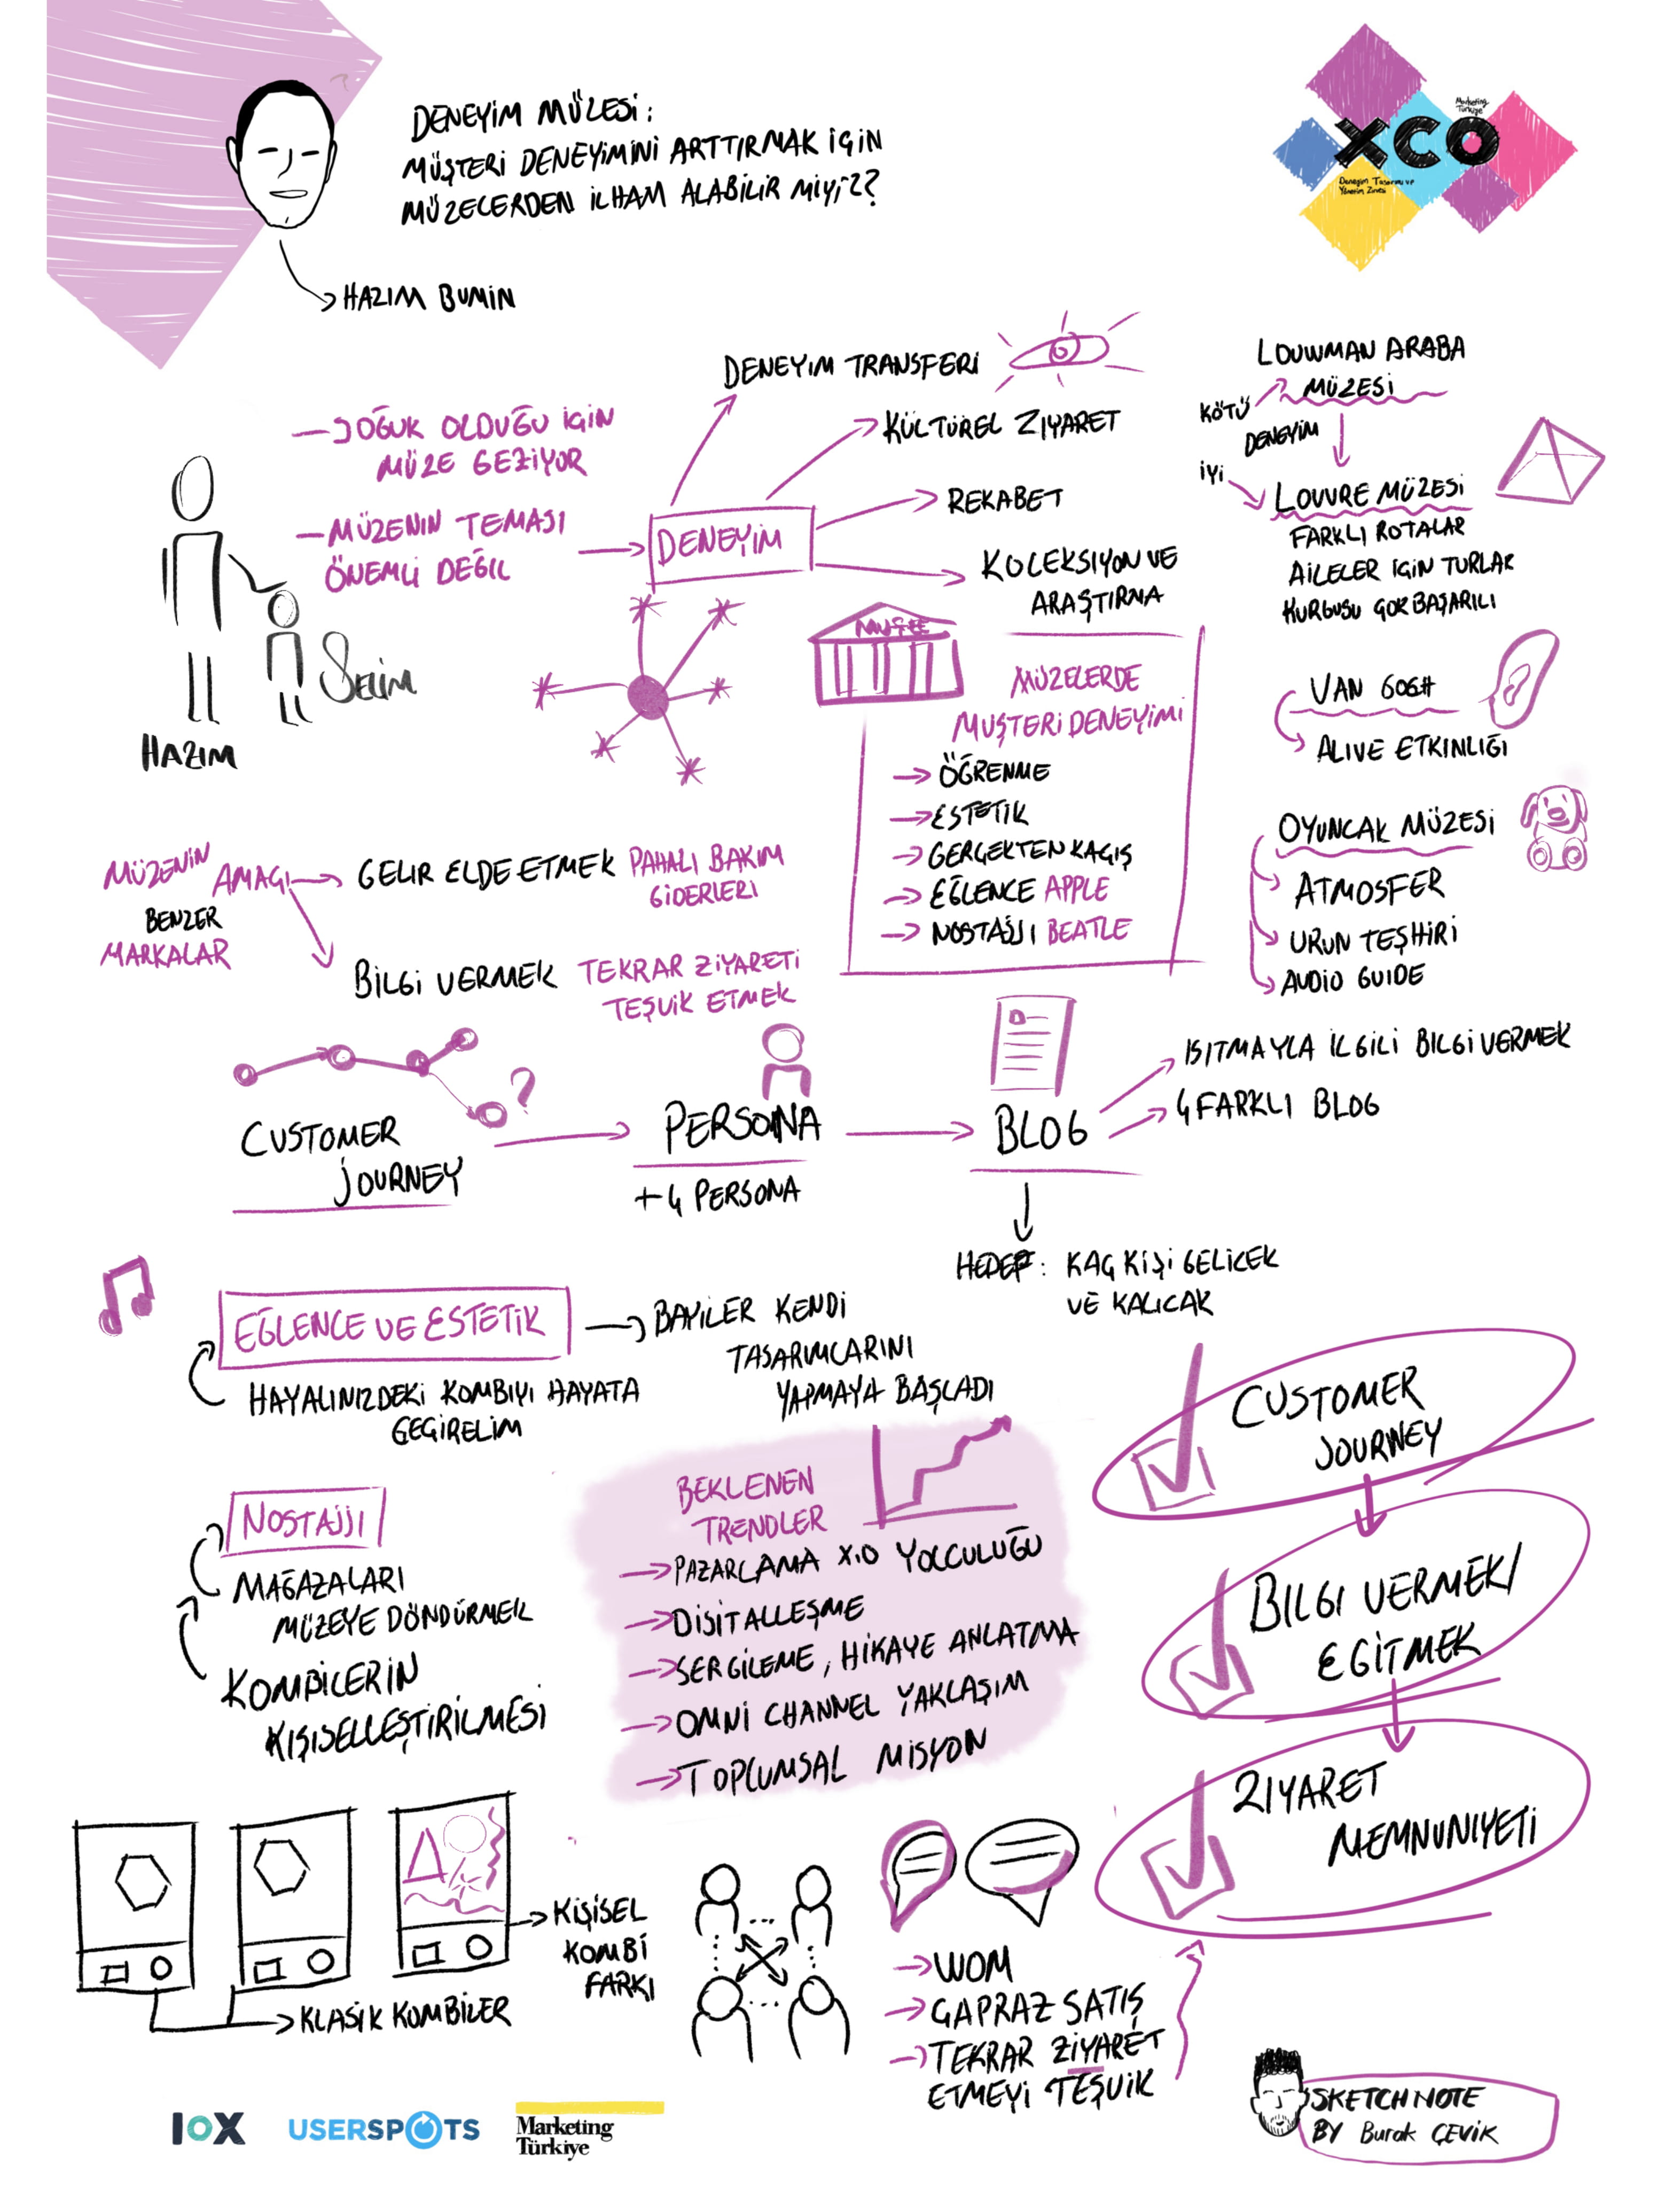 DENEYİM MÜZESİ:
MÜŞTERİ DENEYİMİNİ ARTTIRMAK İÇİN
MÜZELERDEN İLHAM ALABİLİR MİYİZ?
HAZIM BUMİN
Marketing
Türkiye
XCO
Deneyim Tasarımı ve
Yönetim Zirvesi
SOĞUK OLDUĞU İÇİN
MÜZE GEZİYOR
MÜZENİN TEMASI
ÖNEMLİ DEĞİL
HAZIM
SELİM
DENEYİM
DENEYIM TRANSFERİ
KÜLTÜREL ZIYARET
REKABET
KOLEKSIYON VE
ARAŞTIRMA
LOUWMAN ARABA
MÜZESİ
KÖTÜ
DENEYİM
İYİ
LOUVRE MÜZESİ
FARKLI ROTALAR
AİLELER İÇİN TURLAR
KURGUSU ÇOK BAŞARILI
MÜZE
MÜZELERDE
MÜŞTERİ DENEYİMİ
ÖĞRENME
ESTETİK
GERÇEKTEN KAÇIŞ
EĞLENCE APPLE
NOSTALJİ BEATLE
VAN GOGH
ALIVE ETKINLIĞI
OYUNCAK MÜZESİ
ATMOSFER
ÜRÜN TEŞHİRİ
AUDİO GUIDE
MÜZENİN AMACI
BENZER
MARKALAR
GELIR ELDE ETMEK PAHALI BAKIM
GİDERLERİ
BİLGİ VERMEK TEKRAR ZİYARETİ
TEŞVİK ETMEK
CUSTOMER
JOURNEY
?
PERSONA
+4 PERSONA
BLOG
ISITMAYLA İLGİLİ BILGI VERMEK
4 FARKLI BLOG
HEDEF: KAÇ KİŞİ GELİCEK
VE KALICAK
EĞLENCE VE ESTETİK
HAYALINIZDEKİ KOMBIYI HAYATA
GEÇİRELİM
BAYİLER KENDİ
TASARIMLARINI
YAPMAYA BAŞLADI
NOSTALJİ
MAĞAZALARI
MÜZEYE DÖNDÜRMEK
KOMBİLERİN
KIŞISELLEŞTİRİLMESİ
BEKLENEN
TRENDLER
PAZARLAMA X.0 YOLCULUĞU
DİJİTALLEŞME
SERGİLEME, HİKAYE ANLATMA
OMNİ CHANNEL YAKLAŞIM
TOPLUMSAL MİSYON
CUSTOMER
JOURNEY
BILGI VERMEK/
EGİTMEK
ZIYARET
MEMNUNIYETİ
KLASİK KOMBİLER
KİŞİSEL
KOMBİ
FARKI
WOM
ÇAPRAZ SATIŞ
TEKRAR ZİYARET
ETMEYİ TEŞVİK
IOX
USERSPOTS
Marketing
Türkiye
SKETCHNOTE
BY Burak ÇEVİK